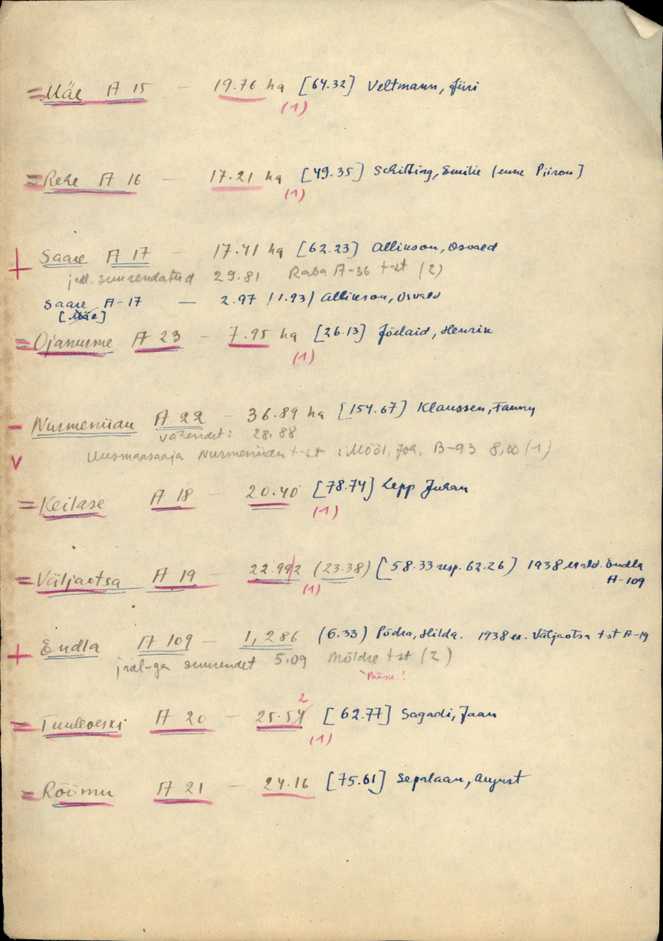 = Mäe A 15 — 19.76 ha [64.32] Veltmann, Jüri
(1)
= Rehe A 16 — 17.21 ha [49.35] Schilling, Emilie (enne Piiron]
(1)
+ Saare A 17 — 17.41 ha [62.23] Allikson, Osvald
jrll. suurendatud 29.81 Raba A-36 t-st (2)
Saare A-17 — 2.97 (1.93) Allikson, Osvald
[Mäe]
= Ojanurme A 23 — 7.95 ha [26.13] Jõelaid, Henrik
(1)
– Nurmeniidu A 22 – 36.89 ha [154.67] Klaussen, Fanny
vähendet: 28.88
v Uusmaasaaja Nurmeniidu t-st : Mööl, Joh. B-93 8,00 (1)
= Keilase A 18 — 20.40 [78.74] Lepp Juhan
(1)
= Väljaotsa A 19 — 22.992 (23.38) [58.33 resp. 62.26) 1938 erald. Endla
(1) A-109
+ Endla A 109 — 1,286 (6.33) Põdra, Hilda. 1938 er. Väljaotsa t st A-19
jral-ga suurendet 5.09 Möldre t-st (2)
= Tuuleveski A 20 — 25.54 [62.77] Sagadi, Jaan
2
(1)
= Rõõmu A 21 — 24.16 [75.61] Sepalaan, August